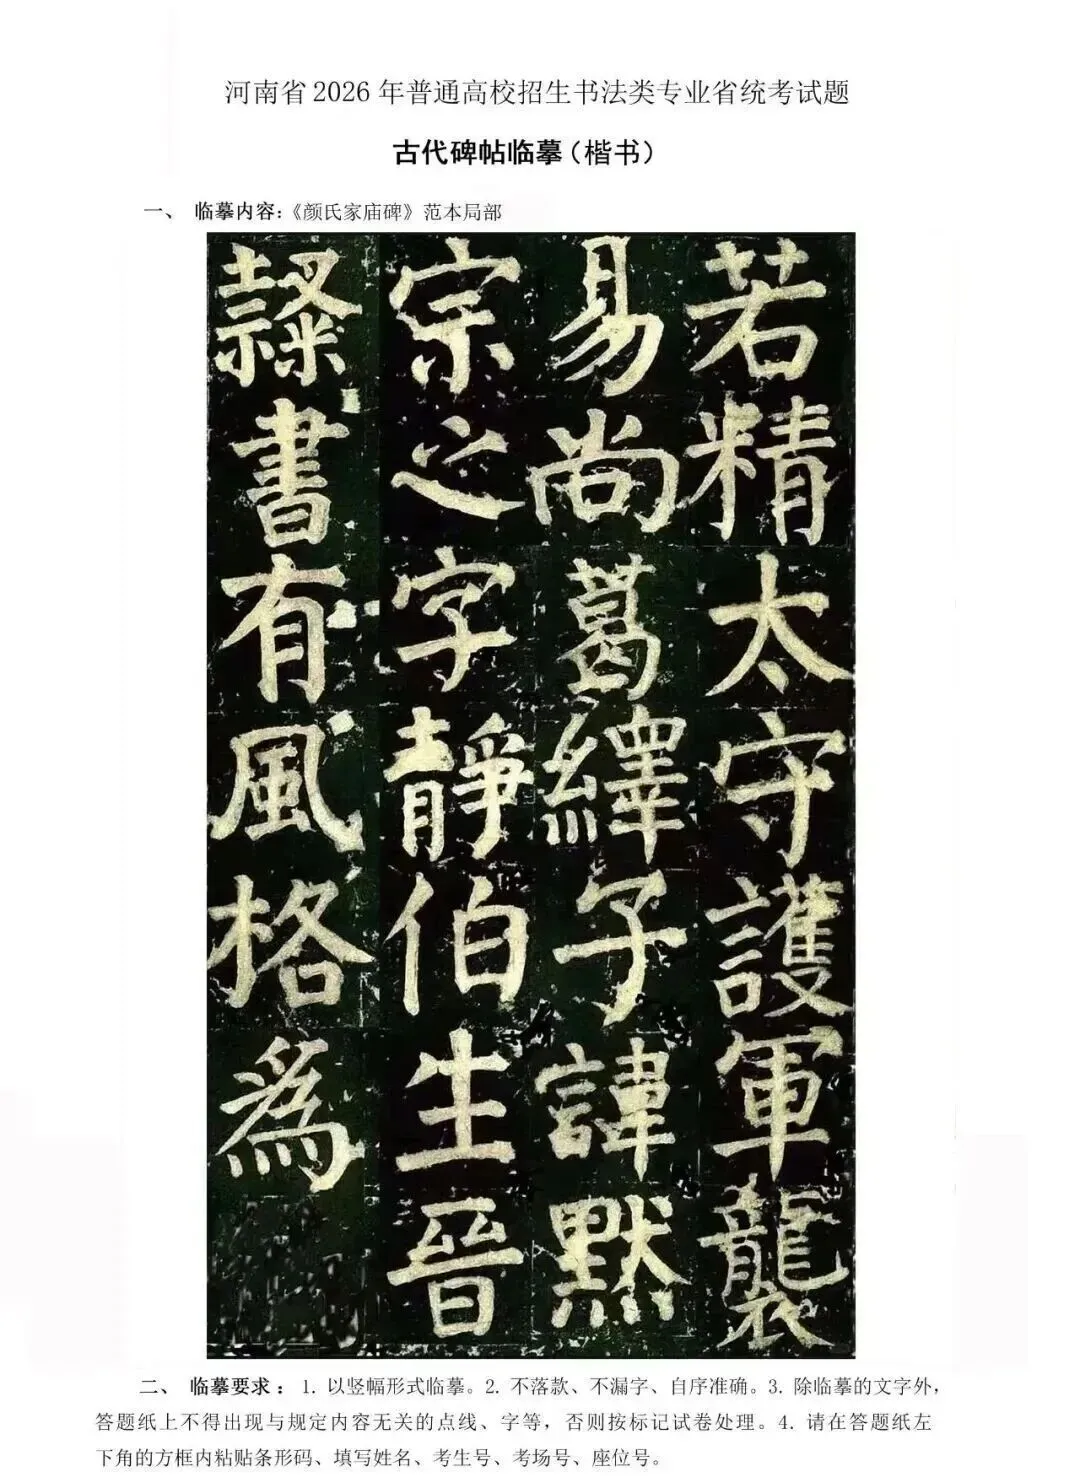 河南省2026年普通高校招生书法类专业省统考试题
古代碑帖临摹(楷书)
一、 临摹内容:《颜氏家庙碑》范本局部
若精太守護軍襲
易尚葛繹子諱默
宗之字靜伯生晉
隸書有風格為
二、 临摹要求: 1. 以竖幅形式临摹。2. 不落款、不漏字、自序准确。3. 除临摹的文字外,
答题纸上不得出现与规定内容无关的点线、字等,否则按标记试卷处理。4. 请在答题纸左
下角的方框内粘贴条形码、填写姓名、考生号、考场号、座位号。